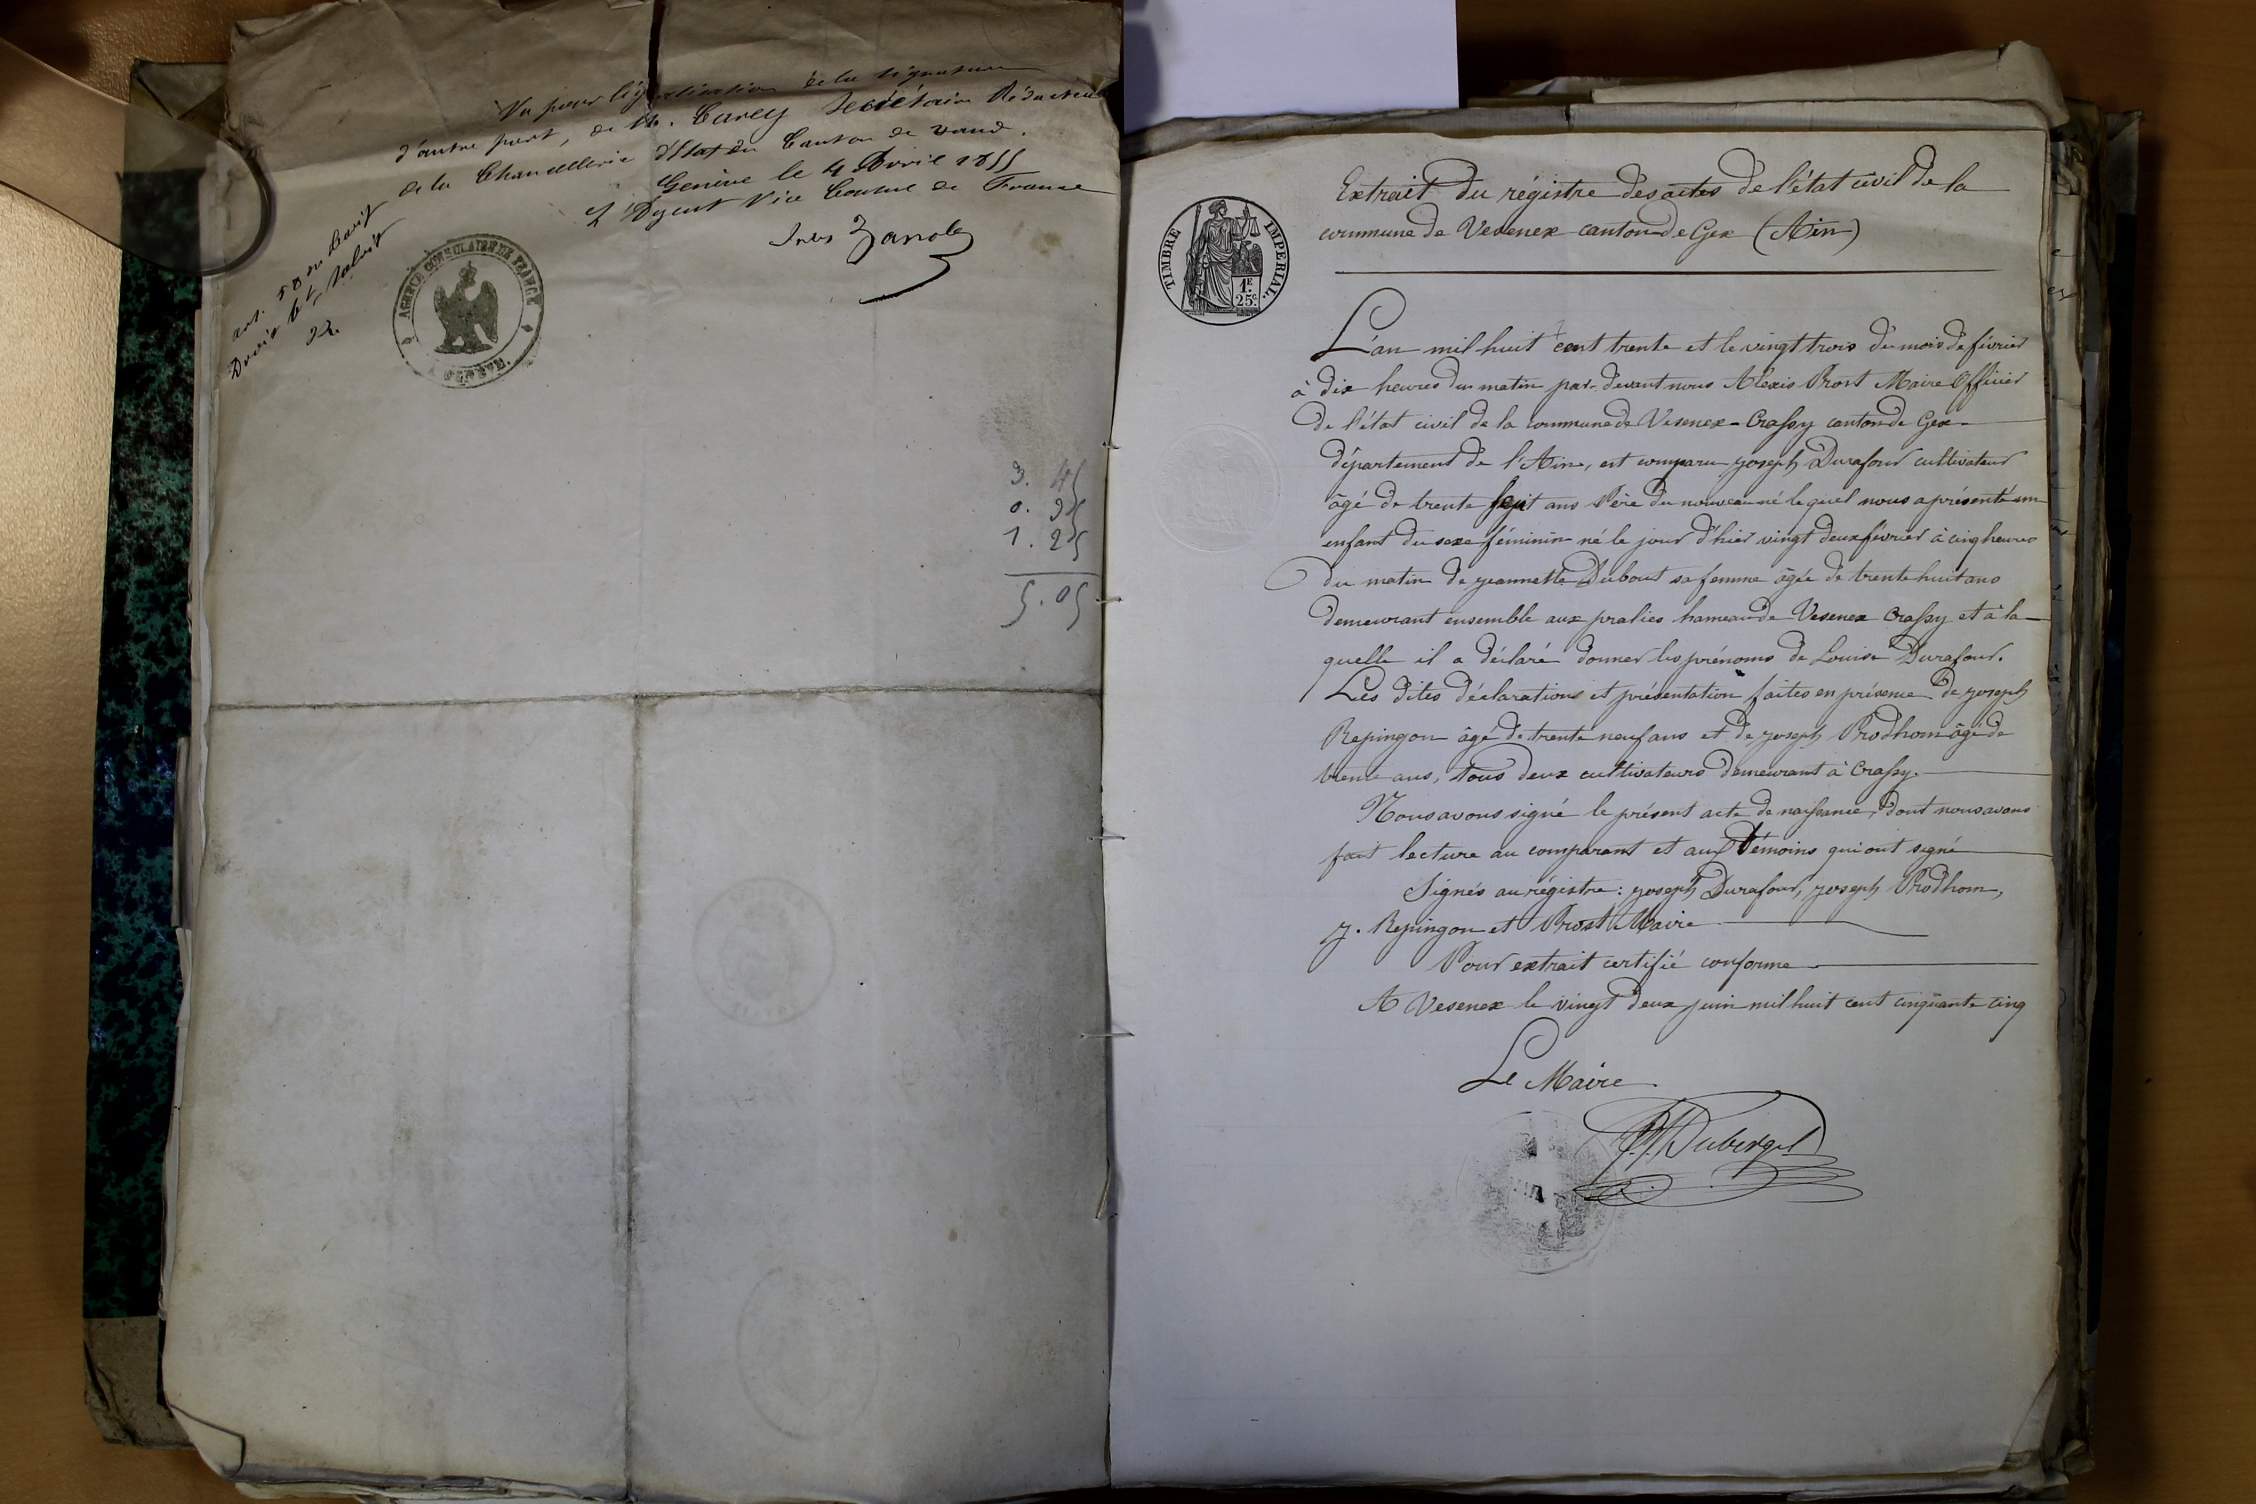 Vu pour légalisation de la signature
d'autre part, de M. Carey Secrétaire Rédacteur
de la Chancellerie d'Etat du Canton de Vaud.
Genève le 4 Avril 1855
L'Agent Vice Consul de France
art. 58 du tarif
Droit
22.
AGENCE CONSULAIRE DE FRANCE
3. 45
0. 35
1. 25
5. 05
Extrait du régistre des actes de l'état civil de la
commune de Vesenex canton de Gex (Ain)
TIMBRE IMPERIAL.
1F.
25c.
L'an mil huit cent trente et le vingt trois du mois de février
à dix heures du matin par-devant nous Alexis Prost Maire Officier
de l'état civil de la commune de Vesenex-Crassy canton de Gex
département de l'Ain, est comparu joseph Durafour cultivateur
âgé de trente sept ans Père du nouveau né lequel nous a présenté un
enfant du sexe féminin né le jour d'hier vingt deux février à cinq heures
du matin de jeannette Dubout sa femme âgée de trente huit ans
demeurant ensemble aux pralies hameau de Vesenex Crassy et à la
quelle il a déclaré donner les prénoms de Louise Durafour.
Les dites déclarations et présentation faites en présence de joseph
Repingon âgé de trente neuf ans et de joseph Prodhom âgé de
trente ans, tous deux cultivateurs demeurant à Crassy.
Nous avons signé le présent acte de naissance, dont nous avons
fait lecture au comparant et aux témoins qui ont signé
Signés au régistre: joseph Durafour, joseph Prodhom,
j. Repingon et Prost Maire
Pour extrait certifié conforme
A Vesenex le vingt deux juin mil huit cent cinquante cinq
Le Maire